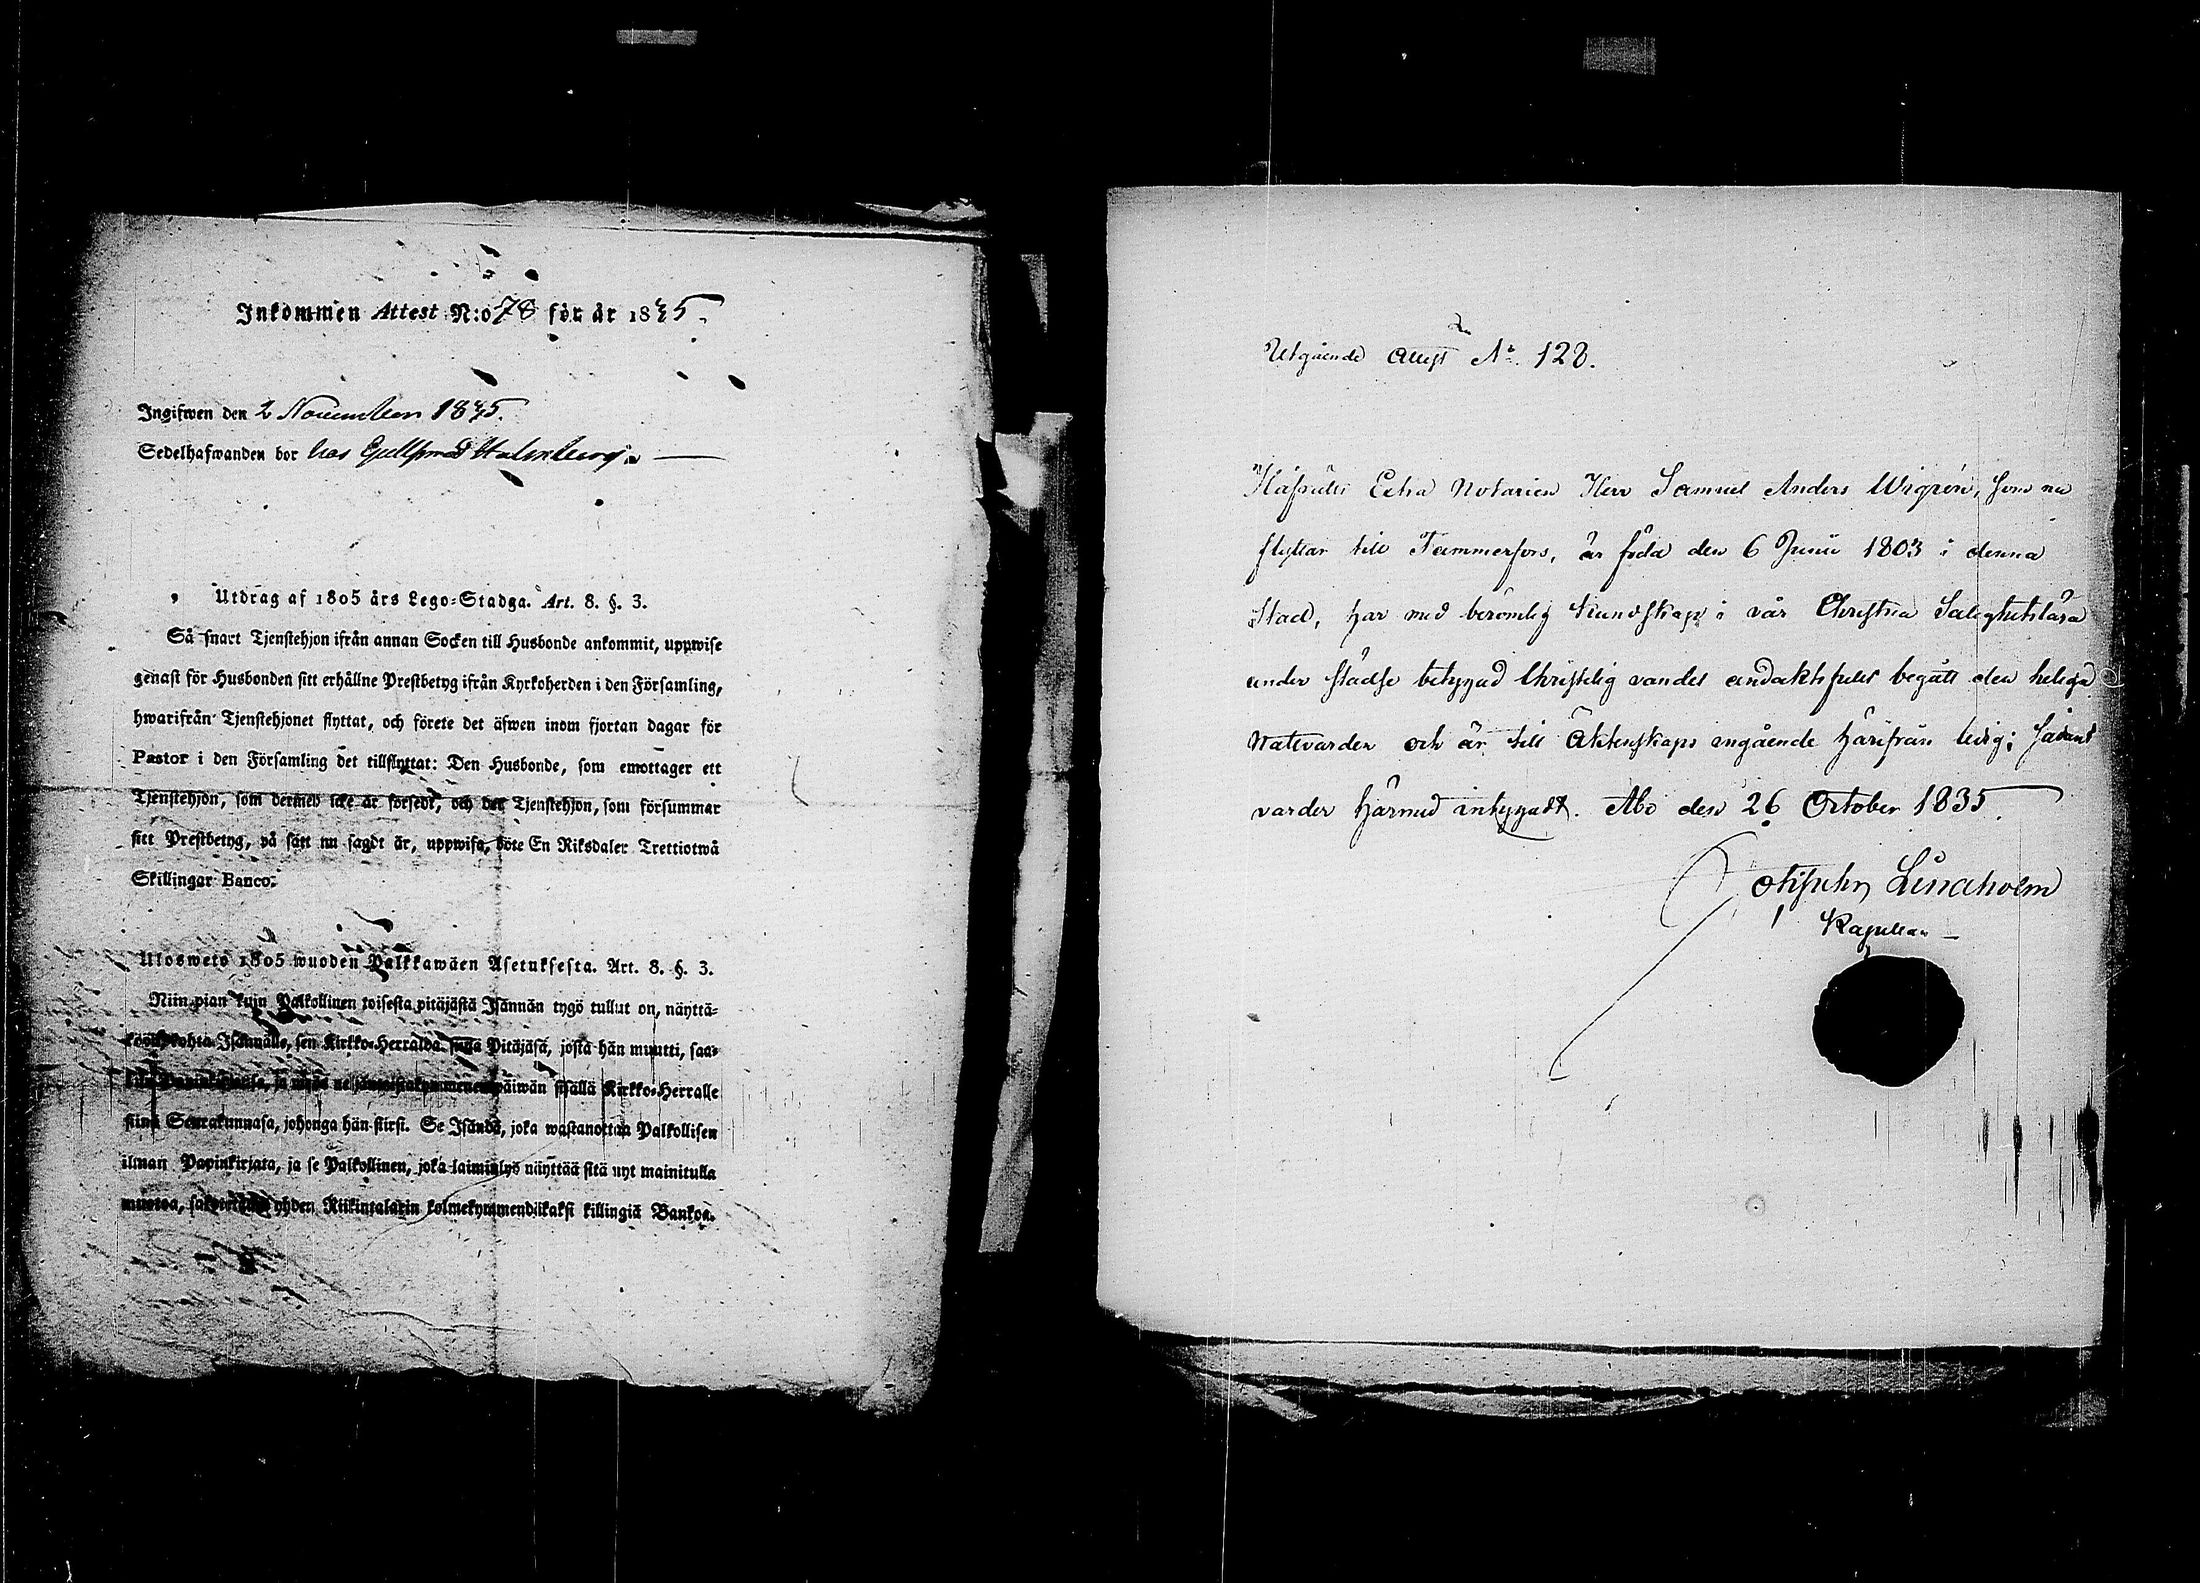 Inkommen Attest N:o 78 för år 1835.
Ingifwen den 2 November 1835.
Sedelhafwanden bor hos
Utdrag af 1805 års Lego-Stadga. Art. 8. §. 3.
Så snart Tjenstehjon ifrån annan Socken till Husbonde ankommit, uppwise
genast för Husbonden sitt erhållne Prestbetyg ifrån Kyrkoherden i den Församling,
hwarifrån Tjenstehjonet flyttat, och förete det äfwen inom fjortan dagar för
Pastor i den Församling det tillflyttat: Den Husbonde, som emottager ett
Tjenstehjon, som dermed icke är försedt, och det Tjenstehjon, som försummar
sitt Prestbetyg, på sätt nu sagdt är, uppwisa, böte En Riksdaler Trettiotwå
Skillingar Banco.
Ulosweto 1805 wuoden Palkkawäen Asetuksesta. Art. 8. §. 3.
Niin pian kuin Palkollinen toisesta pitäjästä Isännän tygö tullut on, näyttä-
köön kohta Isännälle, sen Kirkko-Herralda siinä Pitäjäsä, josta hän muutti, saa-
päiwän sisällä Kirkko-Herralle
siinä Seurakunnasa, johonga hän siirsi. Se Isändä, joka wastanottaa Palkollisen
ilman Papinkirjata, ja se Palkollinen, joka laiminlyö näyttää sitä nyt mainitulla
muotoa, yhden Riikintalarin kolmekymmendäkaksi killingiä Bankoa.
Utgående Attest No. 128.
Håfrätts Extra Notarien Herr Samuel Anders Wigrén, som nu
flyttar till Tammerfors, är född den 6 Junii 1803 i denna
Stad, har med berömlig kundskap i vår Christna Salighetslära
under städse betygad Christelig vandel andaktsfullt begått den heliga
Nattvarden och är till Äktenskaps ingående härifrån ledig; sådant
varder härmed intygadt. Åbo den 26 October 1835.
Lindholm
Kapellan